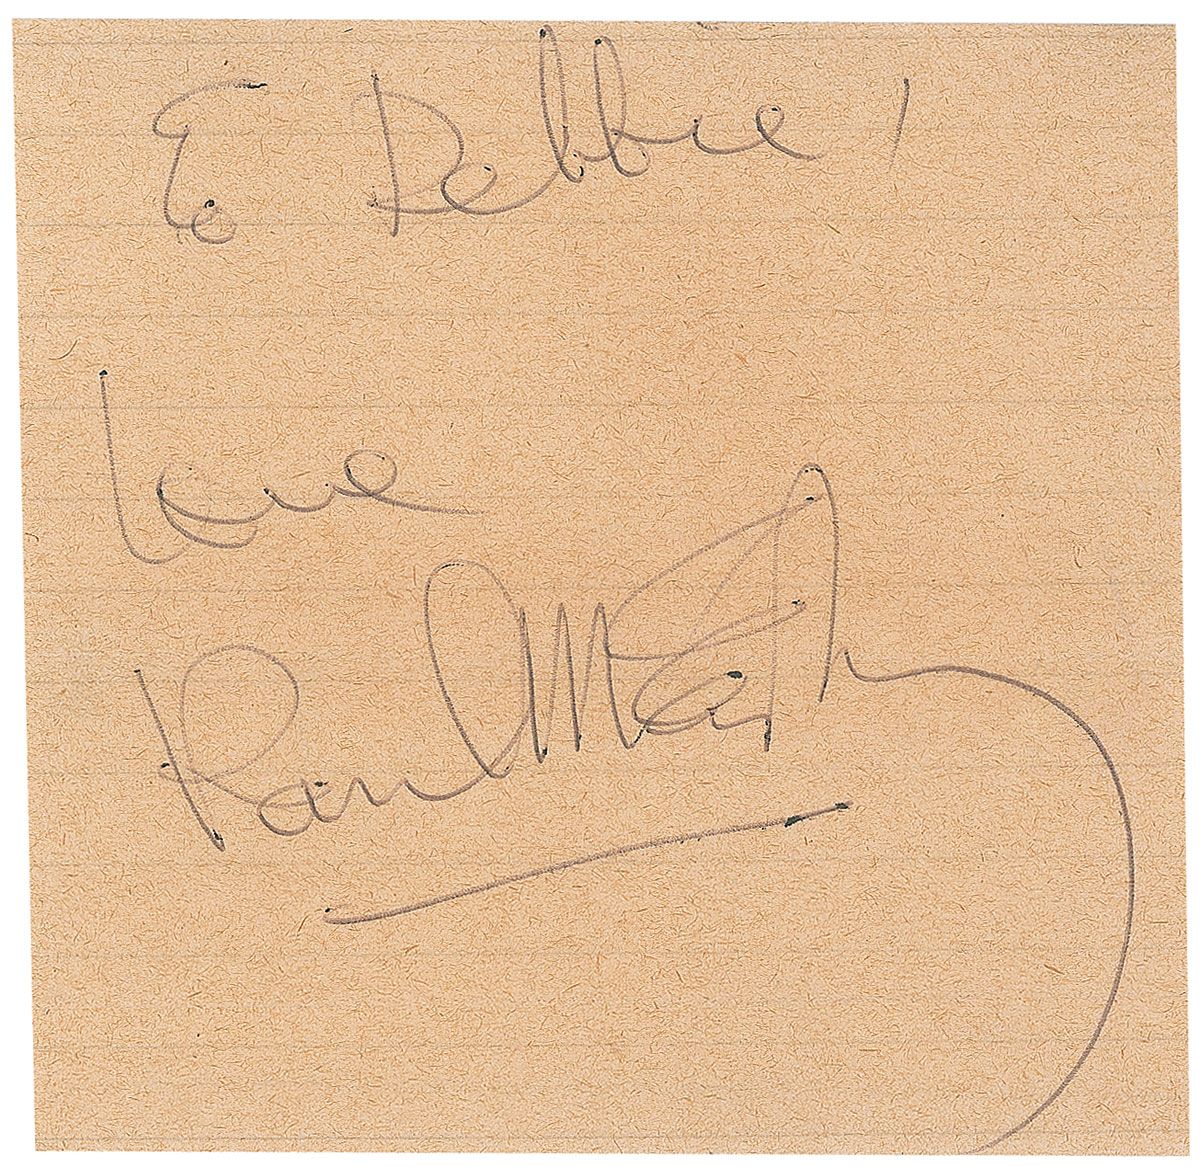 To Debbie,
Love
Paul McCartney